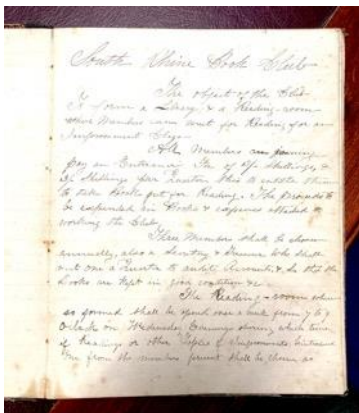 South Rhine Book Club
The object of the Club
Is form a Library & a Reading-room
where Members can meet for Reading & for an
Improvement Class
All Members on joining
pay an Entrance Fee of Shillings &
Shillings per Quarter this to entitle them
to take Books out for Reading. The proceeds to
be expended in Books & expenses attached to
working the Club.
Three Members shall be chosen
annually, also a Secretary & Treasurer who shall
meet once a Quarter to audit Accounts & See that the
Books are kept in good condition &c.
The Reading-room when
so formed shall be opened once a week from 7 to 9
O'clock on Wednesday Evenings during which time
Readings or other Topics of Improvement
One from the members present shall be chosen as